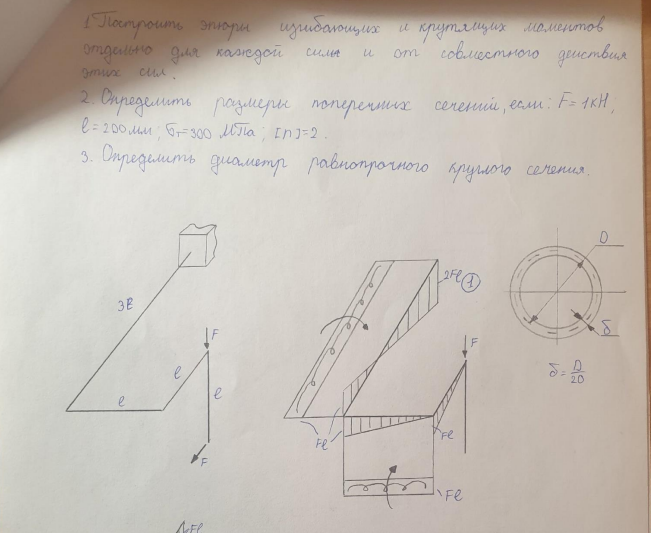 1. Построить эпюры изгибающих и крутящих моментов
отдельно для каждой силы и от совместного действия
этих сил.
2. Определить размеры поперечных сечений, если: F = 1кН,
l = 200мм; σт=300 МПа; [n]=2.
3. Определить диаметр равнопрочного круглого сечения.
3l
F
l
l
l
F
2Fl
1
F
Fl
Fl
Fl
D
δ
δ = D/20
Fl